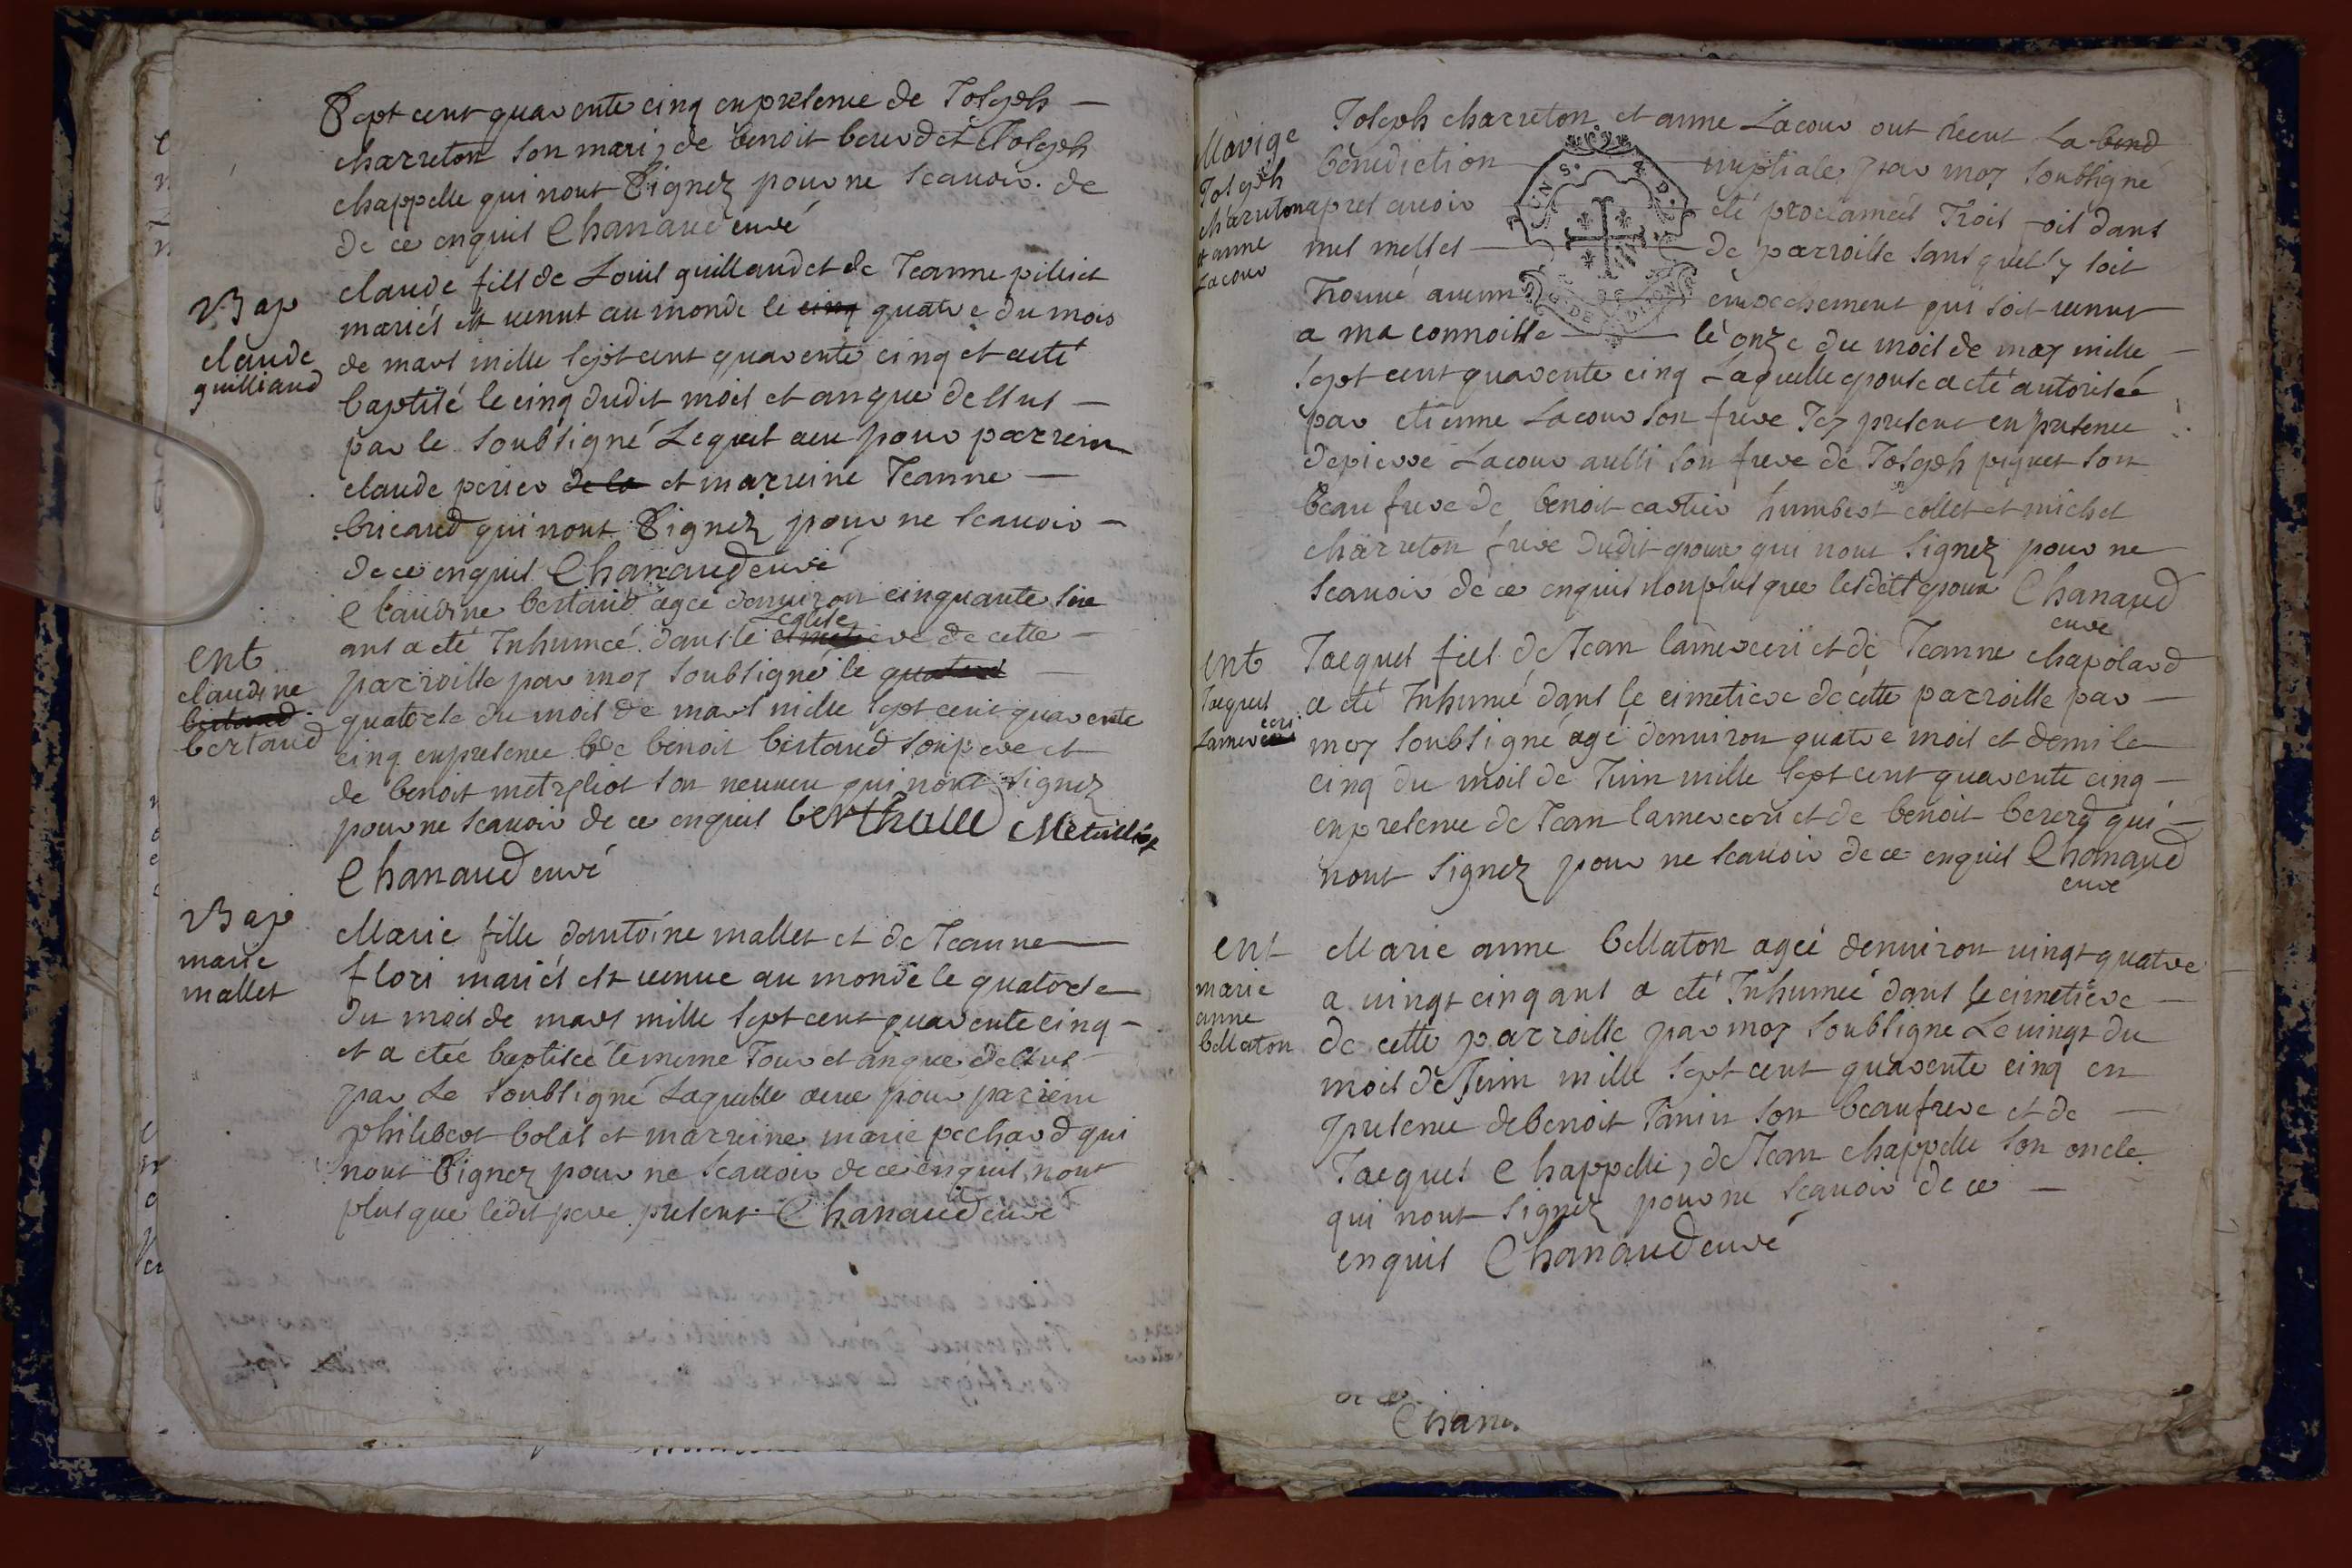 Sept cent quarente cinq en presence de Joseph
charreton son mari, de benoit bererd et Joseph
chappelle qui nont Signez pour ne scauoir. de
de ce enquis Chanaud curé
Bap
claude
guilliaud
claude fils de Louis guillaud et de Jeanne
mariés est uenut au monde le cinq quatre du mois
de mars mille sept cent quarente cinq et a eté
baptisé le cinq dudit mois et an que dessus
par le soubsigné Lequel a eu pour parrein
claude perier de la et marreine Jeanne
bricaud qui nont Signez pour ne scauoir
de ce enquis Chanaud curé
ent
claudine
bertaud
bertaud
claudine bertaud agée denuiron cinquante
Leglise
ans a eté Inhumée dans le cimetiere de cette
parroisse par moy soubsigné le
quatorse du mois de mars mille sept cent quarente
cinq en presence de benoit bertaud son pere et
de benoit son neueu qui nont signez
pour ne scauoir de ce enquis
Chanaud curé
Bap
marie
mallet
Marie fille dantoine mallet et de Jeanne
flori mariés est uenue au monde le quatorse
du mois de mars mille sept cent quarente cinq
et a etée baptisée le meme Jour et an que dessus
par Le soubsigné Laquelle a eue pour parrein
philibert bolas et marreine marie pechard qui
nont Signez pour ne scauoir de ce enquis, nont
plus que ledit pere present Chanaud curé
Mariage
Joseph
charreton
et anne
Lacour
Joseph charreton et anne Lacour ont receut La bend
bénediction nuptiale par moy soubsigné
apres auoir eté proclamés Trois fois dans
nos messes de parroisse sans quil sy soit
Trouué aucun empechement qui soit uenut
a ma connoisse le onze du mois de may mille
sept cent quarente cinq Laquelle epouse a eté autorisée
par etienne Lacour son frere Icy present en presence
de pierre Lacour aussi son frere de Joseph piquet son
beau frere de benoit cartier humbert collet et michel
charreton frere dudit epoux qui nont signez pour ne
scauoir de ce enquis non plus que lesdits epoux Chanaud
curé
ent
Jacques
Jacques fils de Jean et de Jeanne chapolard
a eté Inhumé dans le cimetiere de cette parroisse par
moy soubsigné agé denuiron quatre mois et demi le
cinq du mois de Juin mille sept cent quarente cinq
en presence de Jean et de benoit bererd qui
nont signez pour ne scauoir de ce enquis Chanaud
curé
ent
marie
anne
bellaton
Marie anne bellaton agée denuiron uingt quatre
a uingt cinq ans a eté Inhumée dans le cimetiere
de cette parroisse par moy soubsigné Le uingt du
mois de Juin mille sept cent quarente cinq en
presence de benoit Janin son beaufrere et de
Jacques chappelle, de Jean chappelle son oncle
qui nont signez pour ne scauoir de ce
enquis Chanaud curé